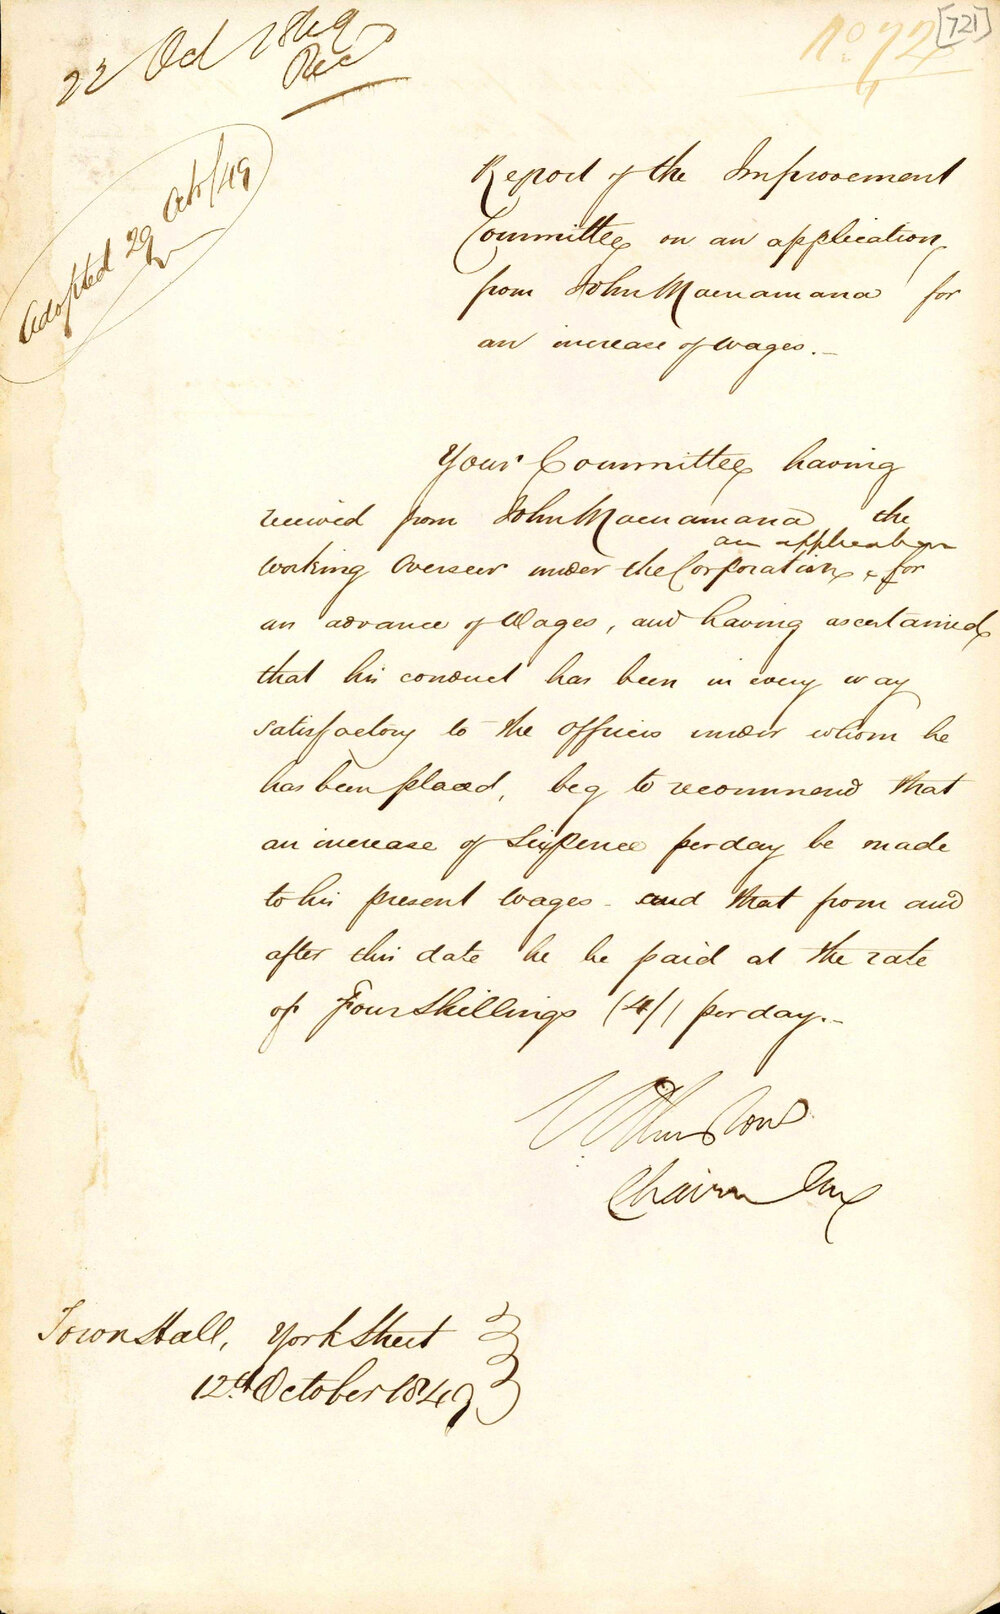 22 Oct 1849
Rec
No 72
[721]
Adopted 29 Octr/49
Report of the Improvement
Committee on an application
from John Macnamana for
an increase of wages.—
Your Committee having
received from John Macnamana the
an application
working Overseer under the Corporation, for
an advance of Wages, and having ascertained
that his conduct has been in every way
satisfactory to the Officers under whom he
has been placed, beg to recommend that
an increase of Sixpence per day be made
to his present wages - and that from and
after this date he be paid at the rate
of Four Shillings (4/) per day.—
Chairman
Town Hall, York Street
12th October 1849